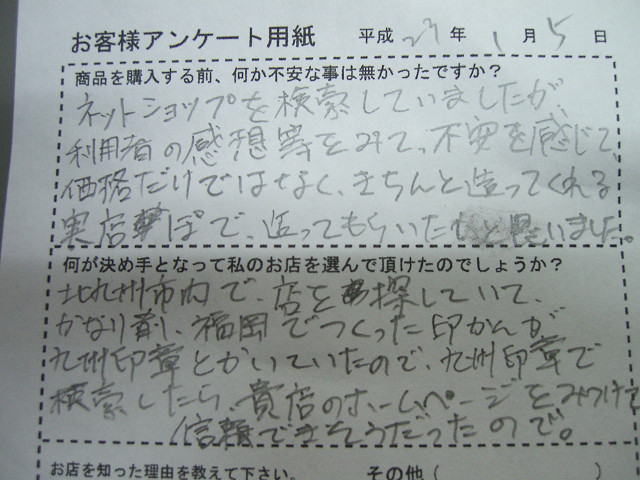 お客様アンケート用紙 平成 27年 1月 5日
商品を購入する前、何か不安な事は無かったですか?
ネットショップを検索していましたが、
利用者の感想等をみて、不安を感じて、
価格だけではなく、きちんと造ってくれる
実店舗で、造ってもらいたいと思いました。
何が決め手となって私のお店を選んで頂けたのでしょうか?
北九州市内で、店を探していて、
かなり前、福岡でつくった印かんが
九州印章とかいていたので、九州印章で
検索したら、貴店のホームページをみつけて
信頼できそうだったので。
お店を知った理由を教えて下さい。 その他(